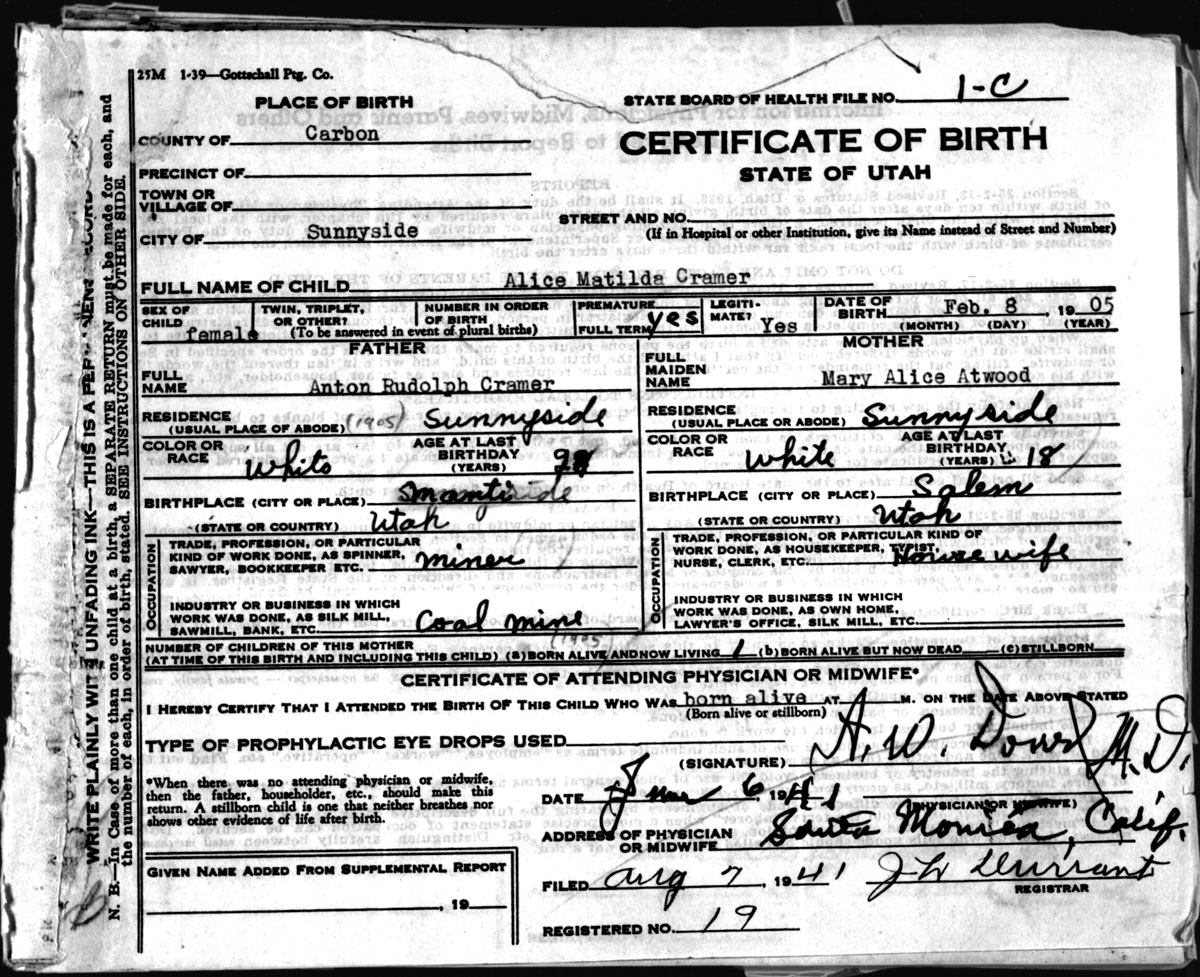 25M 1-39—Gottschall Ptg. Co.
PLACE OF BIRTH
STATE BOARD OF HEALTH FILE NO. 1-C
COUNTY OF Carbon
CERTIFICATE OF BIRTH
STATE OF UTAH
PRECINCT OF
TOWN OR
VILLAGE OF
STREET AND NO.
(If in Hospital or other Institution, give its Name instead of Street and Number)
CITY OF Sunnyside
FULL NAME OF CHILD Alice Matilda Cramer
SEX OF CHILD female
TWIN, TRIPLET, OR OTHER?
NUMBER IN ORDER OF BIRTH
(To be answered in event of plural births)
PREMATURE
FULL TERM yes
LEGITI-MATE? Yes
DATE OF BIRTH Feb. 8 1905
(MONTH) (DAY) (YEAR)
FATHER
FULL NAME Anton Rudolph Cramer
RESIDENCE (USUAL PLACE OF ABODE) (1905) Sunnyside
COLOR OR RACE White
AGE AT LAST BIRTHDAY (YEARS)
BIRTHPLACE (CITY OR PLACE) Manti
(STATE OR COUNTRY) Utah
OCCUPATION
TRADE, PROFESSION, OR PARTICULAR
KIND OF WORK DONE, AS SPINNER,
SAWYER, BOOKKEEPER ETC. miner
INDUSTRY OR BUSINESS IN WHICH
WORK WAS DONE, AS SILK MILL,
SAWMILL, BANK, ETC. Coal mine
MOTHER
FULL MAIDEN NAME Mary Alice Atwood
RESIDENCE (USUAL PLACE OR ABODE) Sunnyside
COLOR OR RACE White
AGE AT LAST BIRTHDAY (YEARS) 18
BIRTHPLACE (CITY OR PLACE) Salem
(STATE OR COUNTRY) Utah
OCCUPATION
TRADE, PROFESSION, OR PARTICULAR KIND OF
WORK DONE, AS HOUSEKEEPER, TYPIST,
NURSE, CLERK, ETC. Housewife
INDUSTRY OR BUSINESS IN WHICH
WORK WAS DONE, AS OWN HOME,
LAWYER'S OFFICE, SILK MILL, ETC.
NUMBER OF CHILDREN OF THIS MOTHER (1905)
(AT TIME OF THIS BIRTH AND INCLUDING THIS CHILD) (a) BORN ALIVE AND NOW LIVING 1 (b) BORN ALIVE BUT NOW DEAD (c) STILLBORN
CERTIFICATE OF ATTENDING PHYSICIAN OR MIDWIFE*
I HEREBY CERTIFY THAT I ATTENDED THE BIRTH OF THIS CHILD WHO WAS born alive AT M. ON THE DATE ABOVE STATED
(Born alive or stillborn)
TYPE OF PROPHYLACTIC EYE DROPS USED
(SIGNATURE) A. W. Dowd M.D.
(PHYSICIAN OR MIDWIFE)
*When there was no attending physician or midwife,
then the father, householder, etc., should make this
return. A stillborn child is one that neither breathes nor
shows other evidence of life after birth.
DATE 6, 1941
ADDRESS OF PHYSICIAN
OR MIDWIFE Santa Monica, Calif.
GIVEN NAME ADDED FROM SUPPLEMENTAL REPORT
, 19
FILED Aug 7, 1941 J W Durrant
REGISTRAR
REGISTERED NO. 19
WRITE PLAINLY WITH UNFADING INK—THIS IS A PERMANENT RECORD
N. B.—In Case of more than one child at a birth, a SEPARATE RETURN must be made for each, and
the number of each, in order of birth, stated. SEE INSTRUCTIONS ON OTHER SIDE.